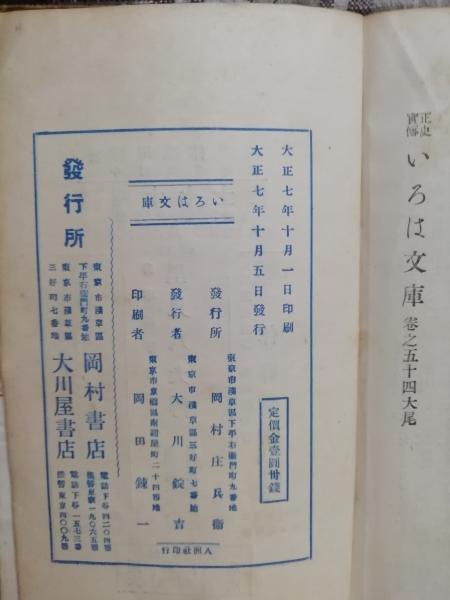 正史
實傳
いろは文庫 卷之五十四大尾
大正七年十月一日印刷
大正七年十月五日發行
定價金壹圓卅錢
いろは文庫
東京市淺草區下平右衞門町九番地
發行所 岡村庄兵衞
東京市淺草區三好町七番地
發行者 大川錠吉
東京市京橋區南紺屋町二十四番地
印刷者 岡田錬一
八洲社印行
發行所
東京市淺草區
下平右衞門町九番地
岡村書店
電話下谷四二〇四番
振替東京一九〇六五番
東京市淺草區
三好町七番地
大川屋書店
電話下谷一五七三番
振替東京四〇〇九番